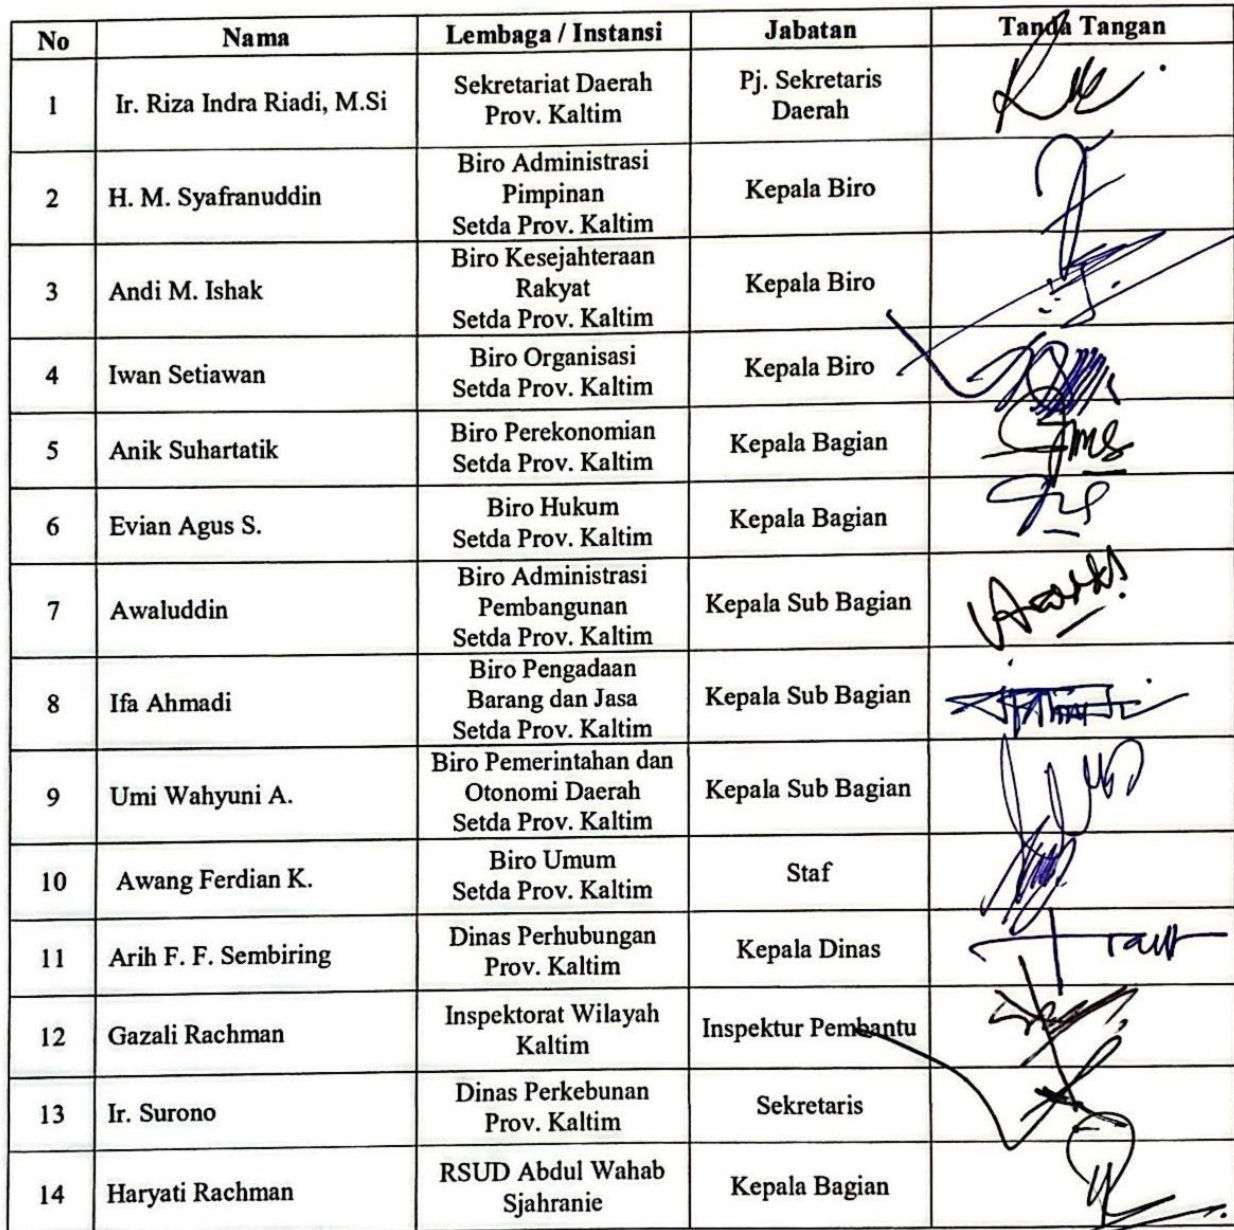 No Nama Lembaga / Instansi Jabatan Tanda Tangan
1 Ir. Riza Indra Riadi, M.Si Sekretariat Daerah Prov. Kaltim Pj. Sekretaris Daerah
2 H. M. Syafranuddin Biro Administrasi Pimpinan Setda Prov. Kaltim Kepala Biro
3 Andi M. Ishak Biro Kesejahteraan Rakyat Setda Prov. Kaltim Kepala Biro
4 Iwan Setiawan Biro Organisasi Setda Prov. Kaltim Kepala Biro
5 Anik Suhartatik Biro Perekonomian Setda Prov. Kaltim Kepala Bagian
6 Evian Agus S. Biro Hukum Setda Prov. Kaltim Kepala Bagian
7 Awaluddin Biro Administrasi Pembangunan Setda Prov. Kaltim Kepala Sub Bagian
8 Ifa Ahmadi Biro Pengadaan Barang dan Jasa Setda Prov. Kaltim Kepala Sub Bagian
9 Umi Wahyuni A. Biro Pemerintahan dan Otonomi Daerah Setda Prov. Kaltim Kepala Sub Bagian
10 Awang Ferdian K. Biro Umum Setda Prov. Kaltim Staf
11 Arih F. F. Sembiring Dinas Perhubungan Prov. Kaltim Kepala Dinas
12 Gazali Rachman Inspektorat Wilayah Kaltim Inspektur Pembantu
13 Ir. Surono Dinas Perkebunan Prov. Kaltim Sekretaris
14 Haryati Rachman RSUD Abdul Wahab Sjahranie Kepala Bagian